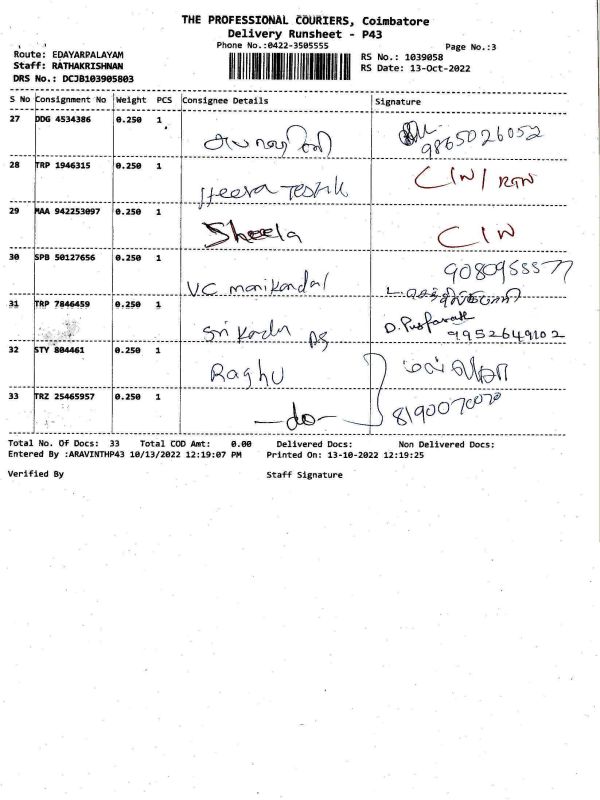 THE PROFESSIONAL COURIERS, Coimbatore
Delivery Runsheet - P43
Phone No.:0422-3505555 Page No.:3
Route: EDAYARPALAYAM RS No.: 1039058
Staff: RATHAKRISHNAN RS Date: 13-Oct-2022
DRS No.: DCJB103905803
S No Consignment No Weight PCS Consignee Details Signature
27 DDG 4534386 0.250 1
9865026052
28 TRP 1946315 0.250 1 Heera C/N/
29 MAA 942253097 0.250 1 Sheela C/N
30 SPB 50127656 0.250 1 VC manikandal
31 TRP 7846459 0.250 1 Sri
9952649102
32 STY 804461 0.250 1 Raghu
33 TRZ 25465957 0.250 1 -do- 8190070070
Total No. Of Docs: 33 Total COD Amt: 0.00 Delivered Docs: Non Delivered Docs:
Entered By :ARAVINTHP43 10/13/2022 12:19:07 PM Printed On: 13-10-2022 12:19:25
Verified By Staff Signature